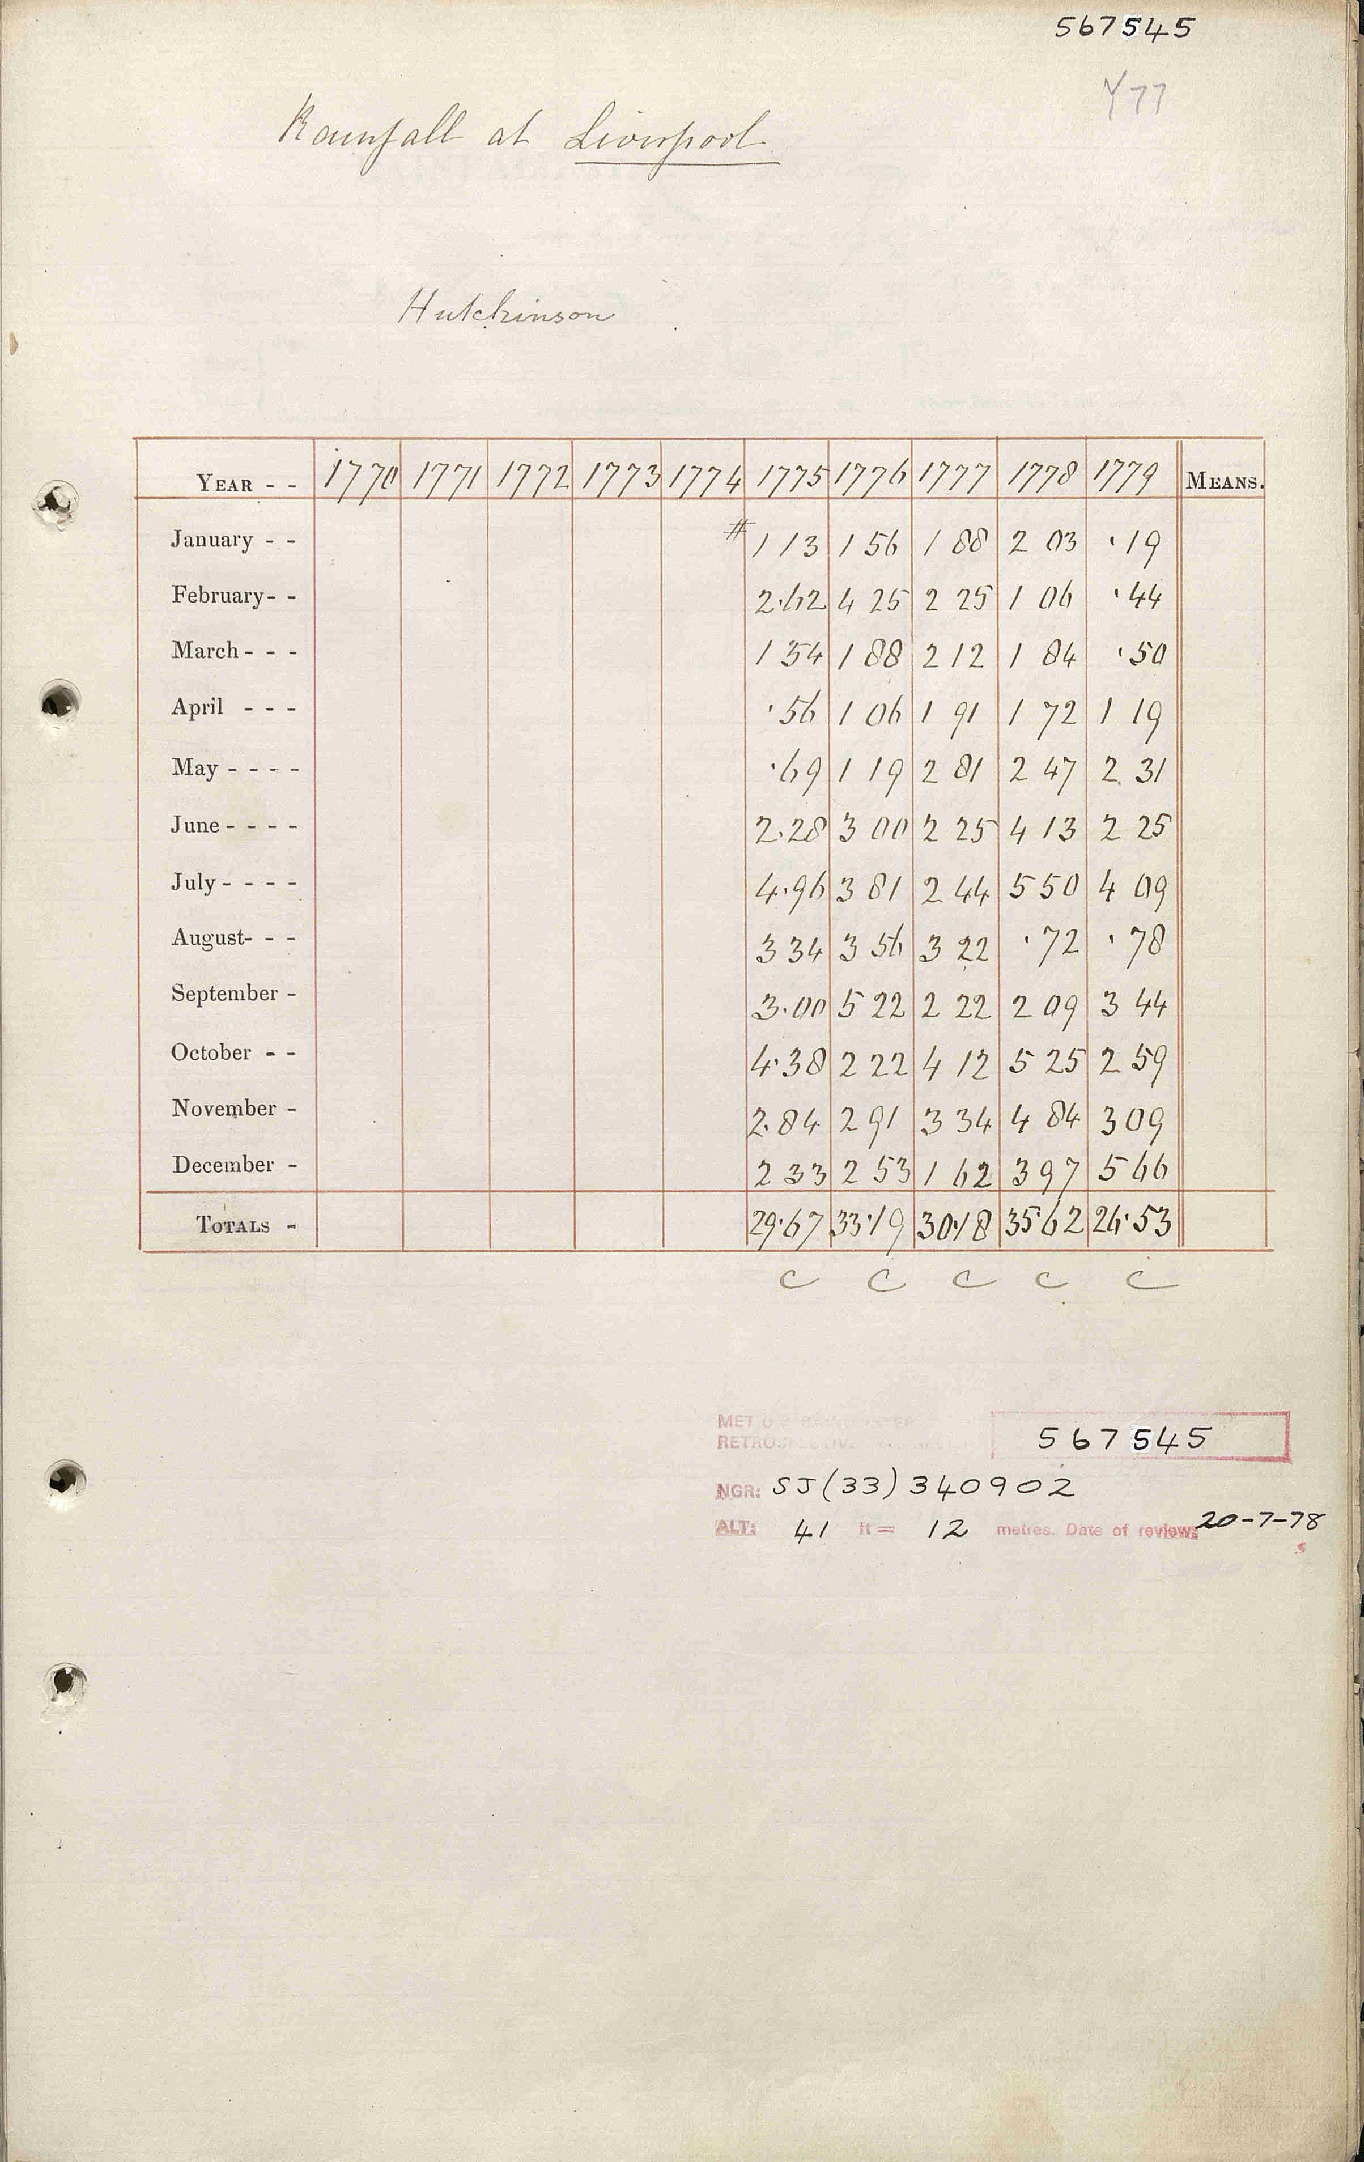 567545
Y77
Rainfall at Liverpool
Hutchinson
YEAR - - 1770 1771 1772 1773 1774 1775 1776 1777 1778 1779 MEANS.
January - - # 1 13 1 56 1 88 2 03 ·19
February- - 2·62 4 25 2 25 1 06 ·44
March - - - 1 54 1 88 2 12 1 84 ·50
April - - - ·56 1 06 1 91 1 72 1 19
May - - - - ·69 1 19 2 81 2 47 2 31
June - - - - 2·28 3 00 2 25 4 13 2 25
July - - - - 4·96 3 81 2 44 5 50 4 09
August- - - 3 34 3 56 3 22 ·72 ·78
September - 3·00 5 22 2 22 2 09 3 44
October - - 4·38 2 22 4 12 5 25 2 59
November - 2·84 2 91 3 34 4 84 3 09
December - 2 33 2 53 1 62 3 97 5 66
TOTALS - 29·67 33·19 30·18 35·62 26·53
C C C C C
MET
567545
NGR: SJ (33) 340902
ALT: 41 ft = 12 metres. Date of review: 20-7-78